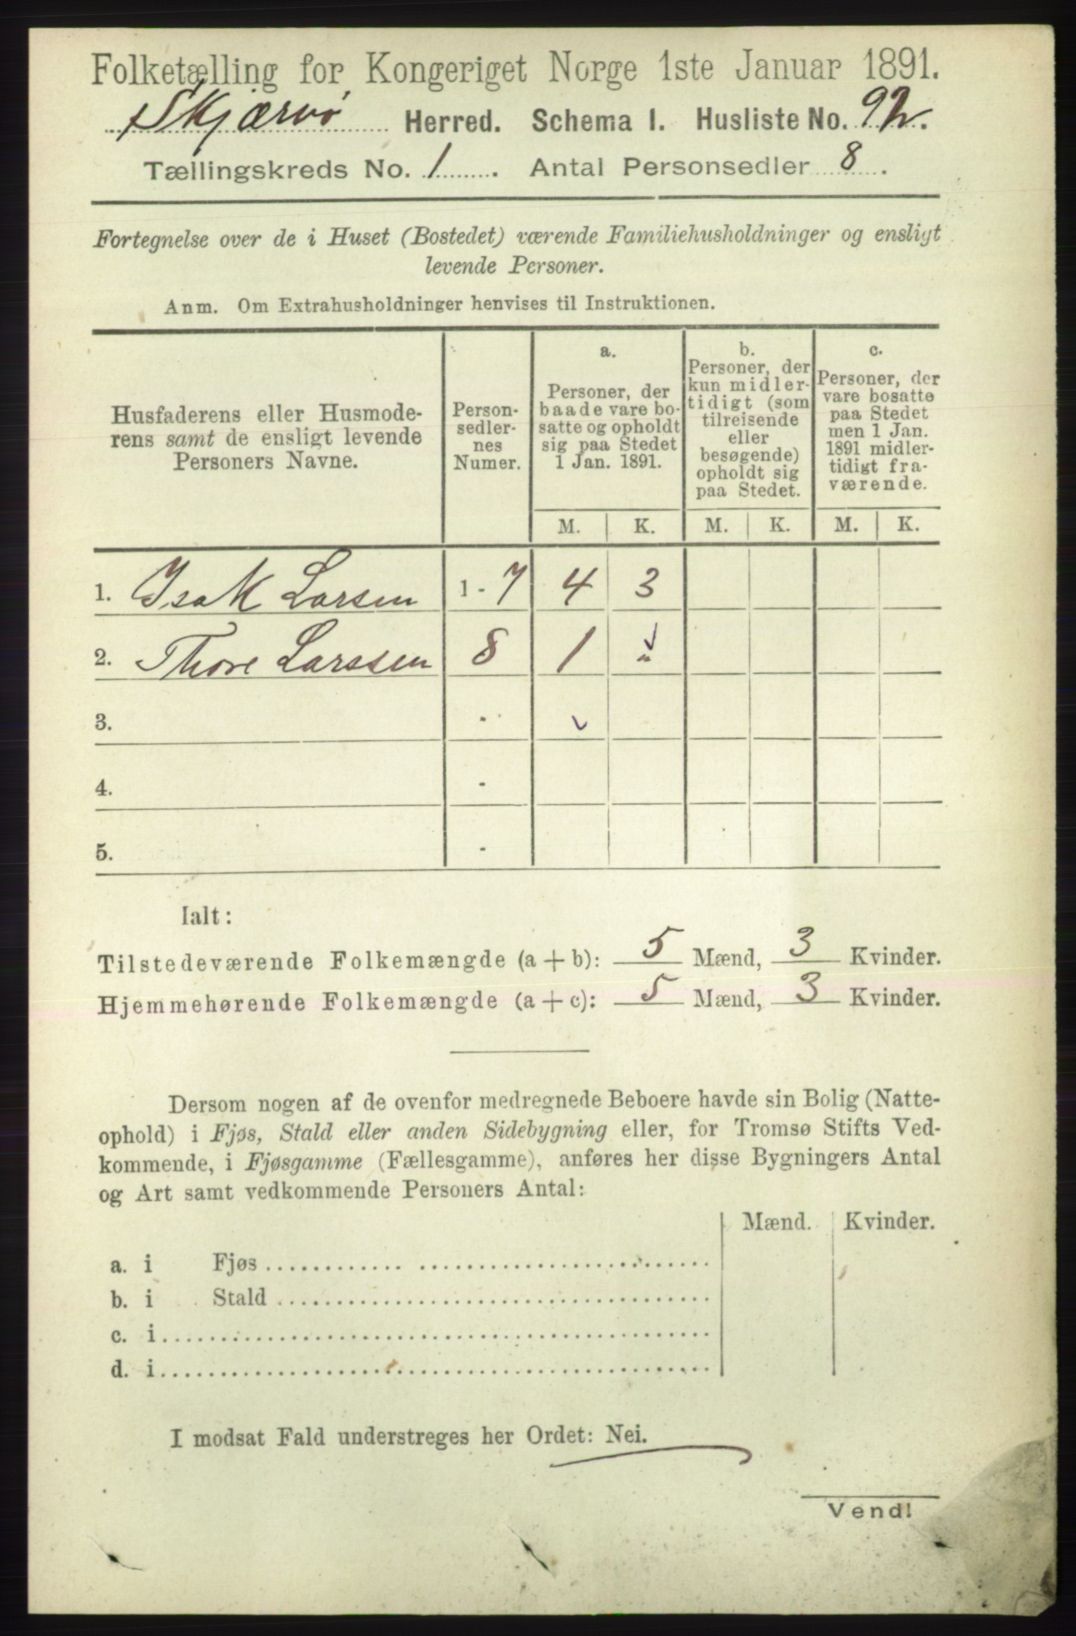 Folketælling for Kongeriget Norge 1ste Januar 1891.
Skjærvø Herred. Schema I. Husliste No. 92.
Tællingskreds No. 1. Antal Personsedler 8.
Fortegnelse over de i Huset (Bostedet) værende Familiehusholdninger og ensligt
levende Personer.
Anm. Om Extrahusholdninger henvises til Instruktionen.
Husfaderens eller Husmode-
rens samt de ensligt levende
Personers Navne.
Person-
sedler-
nes
Numer.
a.
Personer, der
baade vare bo-
satte og opholdt
sig paa Stedet
1 Jan. 1891.
b.
Personer, der
kun midler-
tidigt (som
tilreisende
eller
besøgende)
opholdt sig
paa Stedet.
c.
Personer, der
vare bosatte
paa Stedet
men 1 Jan.
1891 midler-
tidigt fra-
værende.
M. K. M. K. M. K.
1. Isak Larsen 1-7 4 3
2. Thore Larssen 8 1 "
3. -
4. -
5. -
Ialt:
Tilstedeværende Folkemængde (a+b): 5 Mænd, 3 Kvinder.
Hjemmehørende Folkemængde (a+c): 5 Mænd, 3 Kvinder.
Dersom nogen af de ovenfor medregnede Beboere havde sin Bolig (Natte-
ophold) i Fjøs, Stald eller anden Sidebygning eller, for Tromsø Stifts Ved-
kommende, i Fjøsgamme (Fællesgamme), anføres her disse Bygningers Antal
og Art samt vedkommende Personers Antal:
Mænd. Kvinder.
a. i Fjøs
b. i Stald
c. i
d. i
I modsat Fald understreges her Ordet: Nei.
Vend!